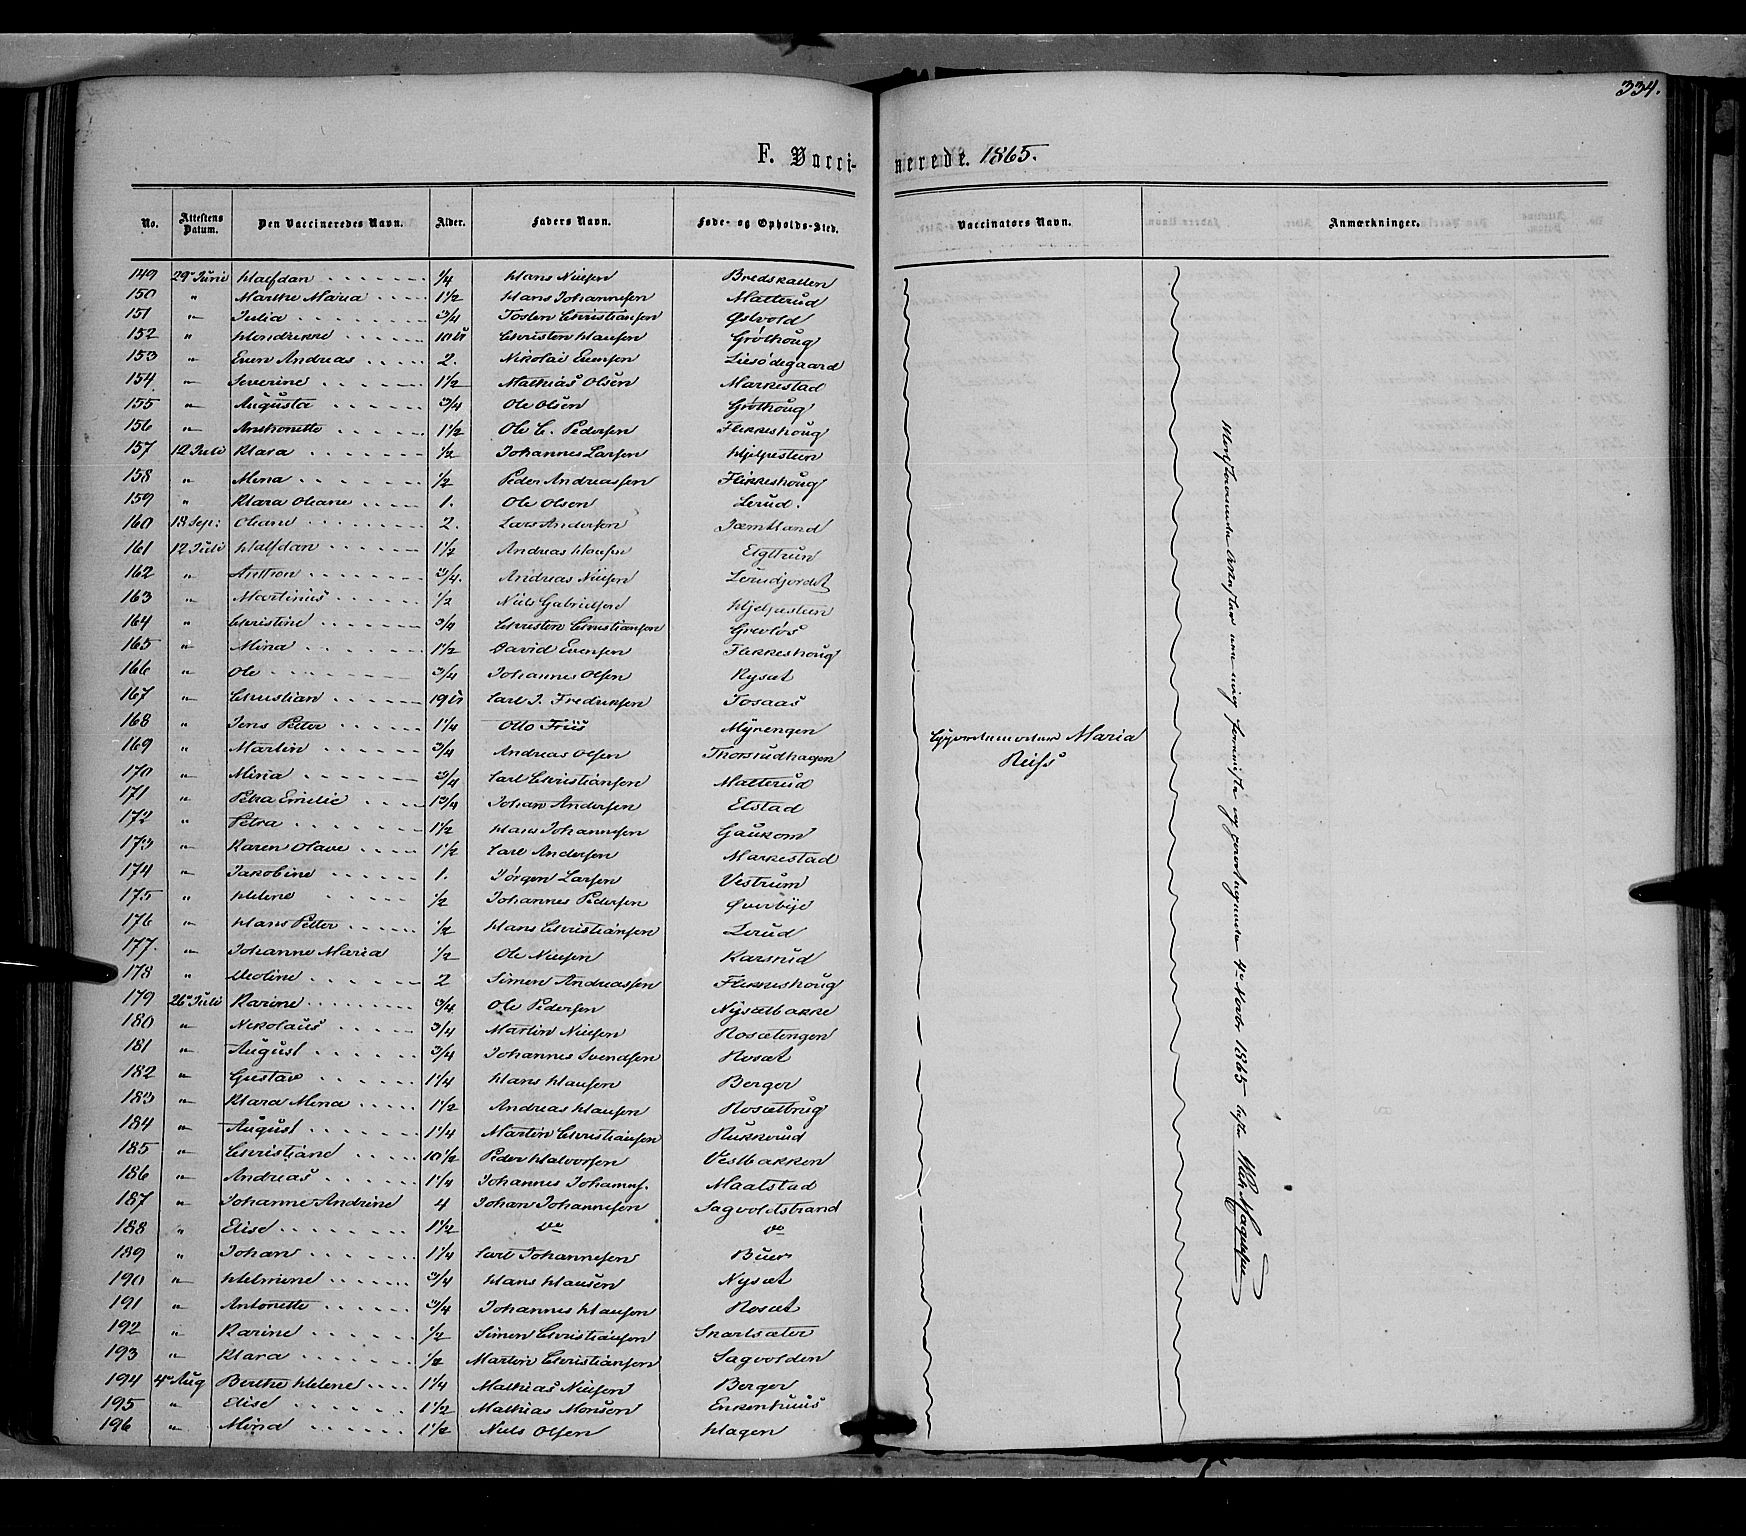 334.
F. Vacci- nerede. 1865.
No. Attestens Datum. Den Vaccineredes Navn. Alder. Faders Navn. Føde- og Opholds-Sted. Vaccinators Navn. Anmærkninger.
149 29de Juni Halfdan 1/4 Hans Nielsen Bredskallen
150 " Marthe Maria 1 1/2 Hans Johannesen Matterud
151 " Julia 3/4 Tosten Christiansen Østvold
152 " Hendrikke Christen Hansen Grøthoug
153 " Even Andreas 2. Nikolai Evensen Liesødegaard
154 " Severine 1 1/2 Mathias Olsen Markestad
155 " Augusta 3/4 Ole Olsen Grøthoug
156 " Anthonette 1 1/2 Ole C. Pedersen Flikkeshoug
157 12 Juli Klara 1/2 Johannes Larsen Hjelpesteen
158 " Mina 1/2 Peder Andreassen Flikkeshoug
159 " Klara Oleane 1. Ole Olsen Lerud.
160 18 Sep: Oliane 2. Lars Andersen Jæmtland
161 12 Juli Halfdan 1 1/2 Andreas Hansen Elgttun
162 " Anthon 3/4. Andreas Nielsen Lerudjordet
163 " Martinus 1/2 Niels Gabrielsen Hjelpesteen
164 " Christine 3/4 Christen Christiansen Grevløs
165 " Mina 1 1/2 David Evensen Flikkeshoug
166 " Ole 3/4 Johannes Olsen Rysæt
167 " Christian Carl J. Fredriksen Tosaas
168 " Jens Petter 1 1/4 Otto Friis Myrengen
169 " Martin 3/4 Andreas Olsen Thorsrudhagen
Gjordemoder Maria
Reiss
170 " Mina 3/4 Carl Christiansen Matterud
171 " Petra Emilie 1 3/4 Johan Andersen Elstad
172 " Petra 1 1/2 Hans Johannesen Gaukom
173 " Karen Olave 1 1/2 Carl Andersen Markestad
174 " Jakobine 1. Jørgen Larsen Vestrum
175 " Helene 1/2 Johannes Pedersen Øverbye
176 " Hans Petter 1/2 Hans Christiansen Lerud
177. " Johanne Maria 1/2 Ole Nielsen Karsrud
178 " Meoline 2 Simen Andreassen Flikkeshoug
179 26de Juli Karine 3/4 Ole Pedersen Nysætbakke
180 " Nikolaus 3/4 Martin Nielsen Rosætengen
181 " August 3/4 Johannes Svendsen Rosæt
182 " Gustav 1 1/4 Hans Hansen Berger
183 " Klara Mina 1 1/2 Andreas Hansen Rosætbrug
184 " August 1 1/4 Martin Christiansen Rukkerud
185 " Christiane 10 1/2 Peder Halvorsen Vestbakken
186 " Andreas 1 1/4 Johannes Johannes. Maatstad
187 " Johanne Andrine 4 Johan Johannesen Sagvoldstrand
188 " Elise 1 1/2 do do
189 " Johan 1 1/4 Carl Johannesen Buer
190 " Helmine 3/4 Hans Hansen Nysæt
191 " Antonette 3/4 Johannes Hansen Rosæt
192 " Karine 1/2 Simen Christiansen Snartsæter
193 " Klara 1/2 Martin Christiansen Sagvolden
194 4de Aug Berthe Helene 1 1/4 Mathias Nielsen Berger
195 " Elise 1 1/2 Mathias Monsen Enkenhuus
196 " Mina 1 1/2 Niels Olsen Hagen
Attester mig og 4de Novbr 1865